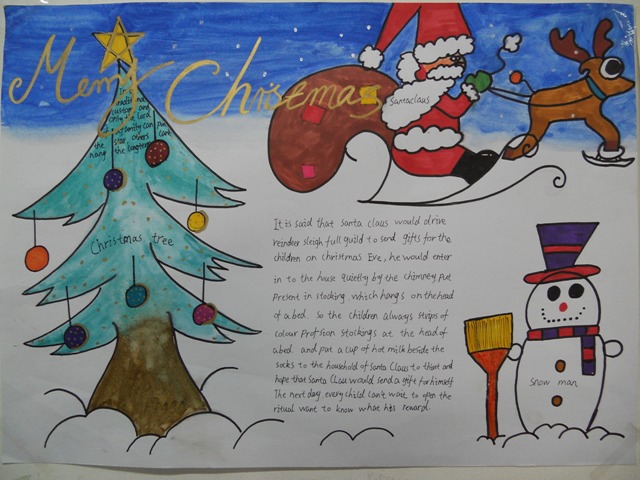 Merry Christmas
Santaclaus
In
traditional
custom and
only the lord
put
the star others
hang the longterm cant
Christmas tree
It is said that Santa claus would drive
reindeer sleigh full guild to send gifts for the
children on christmas Eve, he would enter
in to the house quietly by the chimney. Put
Present in stocking which hangs on the head
of a bed. So the children always straps of
colour Profsion stockings at the head of
a bed and put a cup of hot milk beside the
socks to the household of Santa Claus to thirst and
hope that Santa Claus would send a gift for himself
The next day, every child can't wait to open the
ritual want to know what his reward.
Snow man